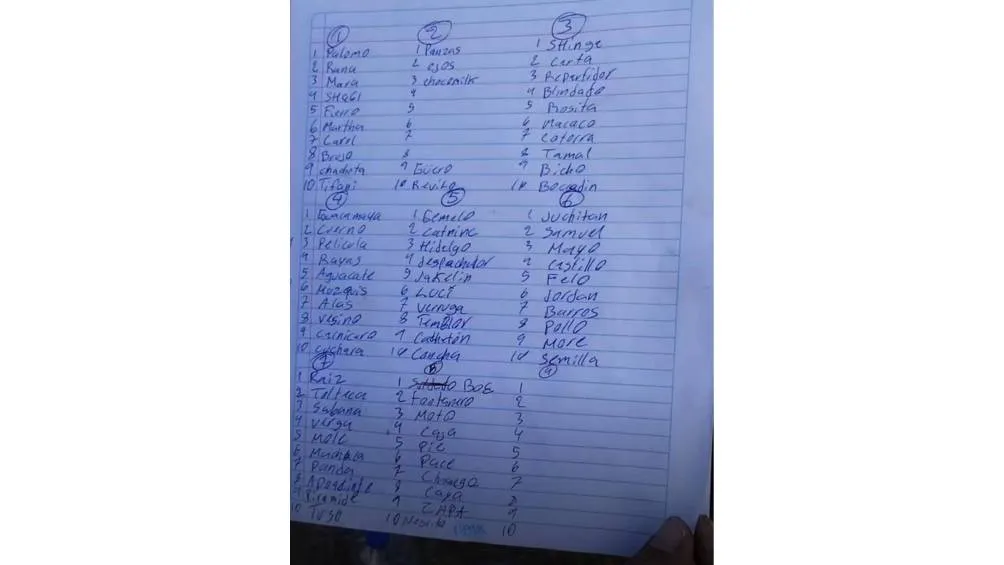 1 2 3
1 Palomo 1 Panzas 1 SHinge
2 Rana 2 ojos 2 Carta
3 Mara 3 chocomilk 3 Repartidor
4 4 Blindado
5 Fierro 5 5 Rosita
6 Martha 6 6 Macaco
7 Carol 7 7 Catorra
8 Brujo 8 8 Tamal
9 chachota 9 Güero 9 Bicho
10 Tifani 10 10
4 5 6
1 Guacamaya 1 Gemelo 1 Juchitan
2 Cuerno 2 2 Samuel
3 Pelicula 3 Hidalgo 3 Mayo
4 Rayas 4 despachador 4 Castillo
5 Aguacate 5 Jakelin 5 Felo
6 6 Luci 6 Jordan
7 Alas 7 Verruga 7 Barros
8 Vesino 8 Temblor 8 Pollo
9 Carnicero 9 9 More
10 cuchara 10 Concha 10 Semilla
7 8 9
1 Raiz 1 BOE 1
2 Tolteca 2 Fontanero 2
3 Sabana 3 Moto 3
4 Verga 4 Caja 4
5 Mole 5 Pie 5
6 6 6
7 Panda 7 Chango 7
8 8 8
9 Piramide 9 ZAPA 9
10 Tuso 10 10